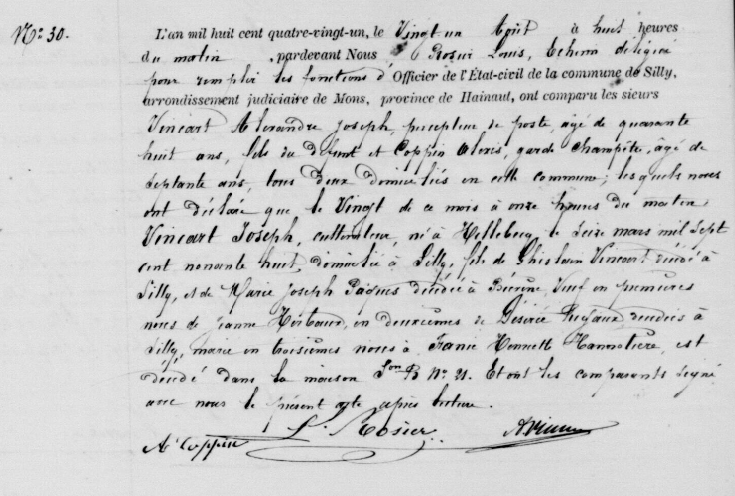 N° 30.
L'an mil huit cent quatre-vingt-un, le Vingt un Août à huit heures
du matin, pardevant Nous Rosier Louis, Echevin délégué
pour remplir les fonctions d'Officier de l'État-civil de la commune de Silly,
arrondissement judiciaire de Mons, province de Hainaut, ont comparu les sieurs
Vincart Alexandre Joseph, percepteur de poste, agé de quarante
huit ans, fils du défunt et Coppin Alexis, garde Champêtre, âgé de
septante ans, tous deux domiciliés en cette commune; lesquels nous
ont déclaré que le Vingt de ce mois à onze heures du matin
Vincart Joseph, cultivateur, né à Hellebecq le seize mars mil sept
cent nonante huit, domicilié à Silly, fils de Ghislain Vincart décédé à
Silly, et de Marie Joseph Pâques décédée à Biévène Veuf en premières
noces de Jeanne en deuxièmes de Désirée décédées à
Silly, marié en troisièmes noces à Hannotière, est
décédé dans la maison Son B N° 21. Et ont les comparants signé
avec nous le présent acte après lecture.
A Coppin L. Rosier